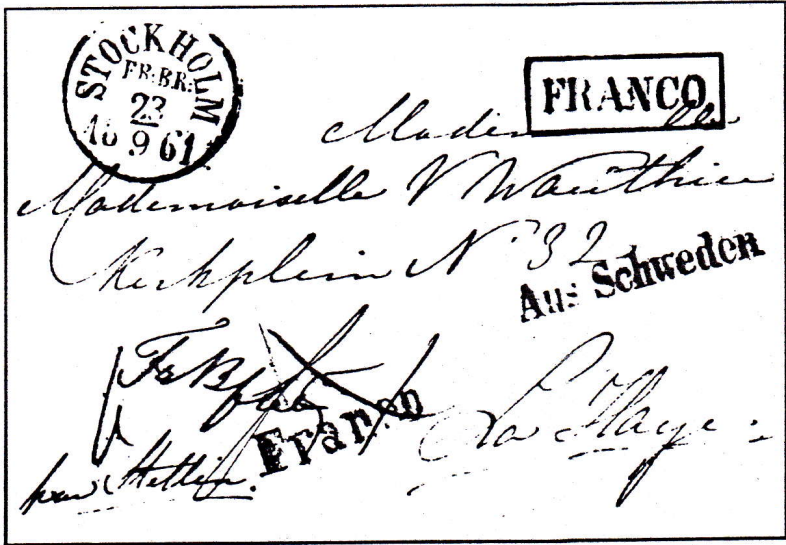 STOCKHOLM
FR:BR:
23
18 9 61
FRANCO
Mademoiselle V Wauthier
Kerkplein N.º 32.
Aus Schweden
Franco
La Haye.
par Stettin.